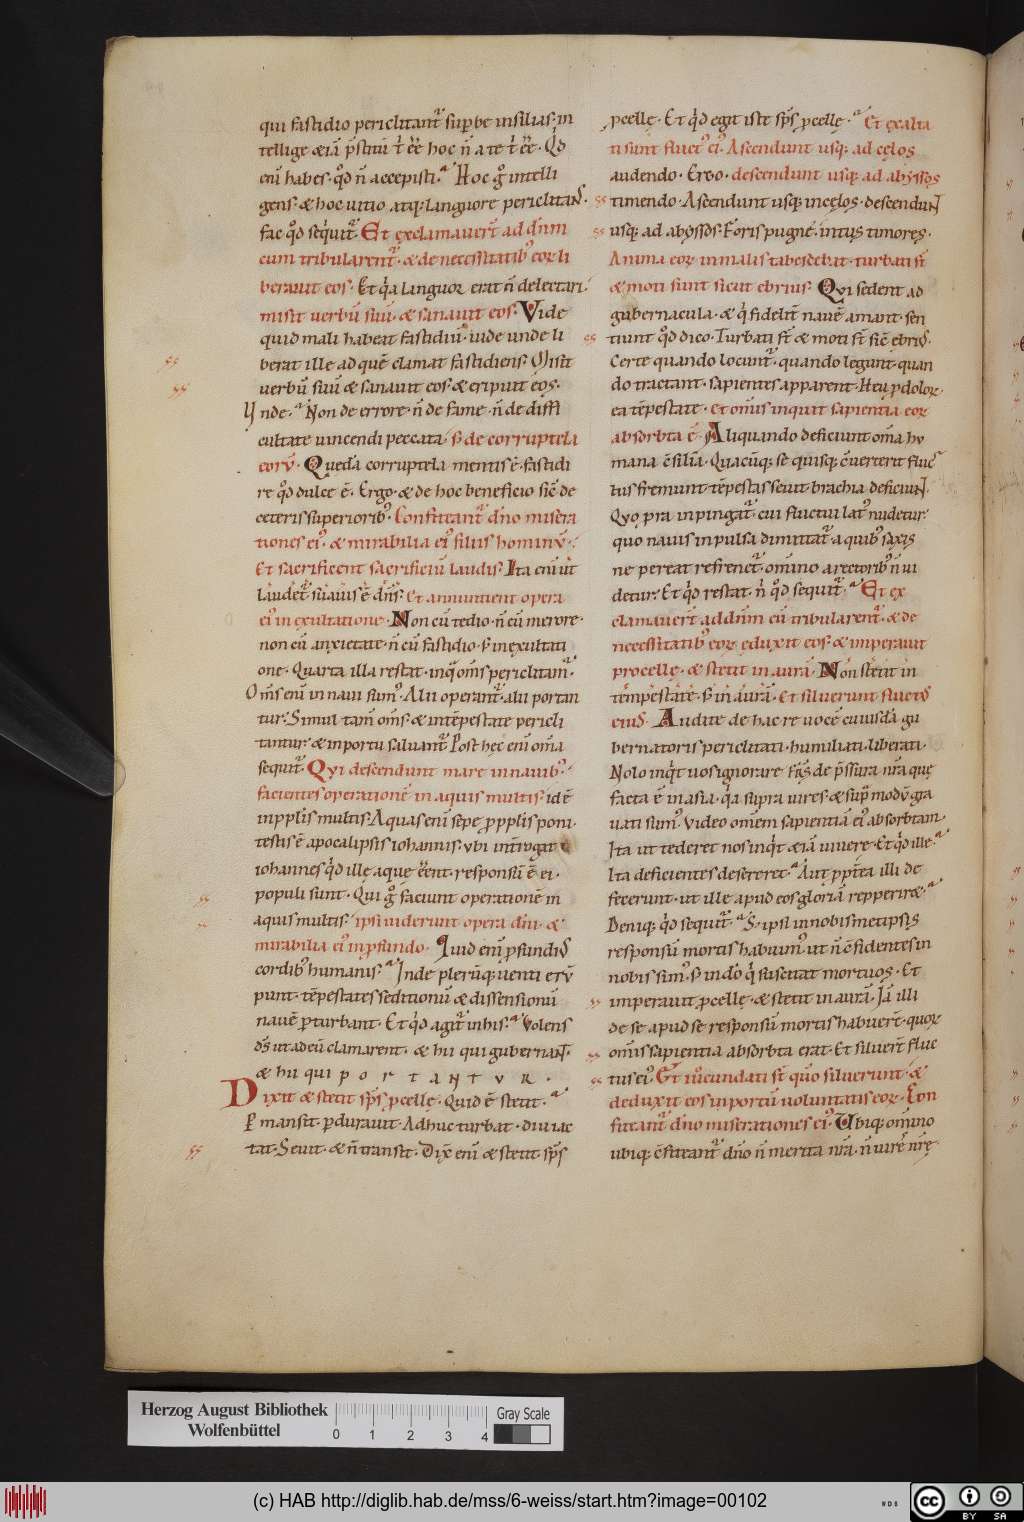 qui fastidio periclitant᷑ supbe insilias· in
tellige &iā p̄stitū t̓ ee̅ hoc n̄ a te t̓ ee̅· Qd̓
eni̅ habes· qd̓ n̄ accepisti· Hoc g̊ intelli
gens· & hoc uitio atq; languore periclitans̄·
fac qd̓ seq̓uit᷑· Et exclamauer̄t ad dn̄m
cum tribularent᷑· & de necessitatib; eor̄ li
berauit eos· Et q̓a languor erat n̄ delectari·
misit uerbū suū· & sanauit eos· Vide
quid mali habeat fastidiū· uide unde li
berat ille ad quē clamat fastidiens· Misit
uerbū suū & sanauit eos· & eripuit eos·
Vnde· Non de errore· n̄ de fame· n̄ de diffi
cultate uincendi peccata· s; de corruptela
eorū· Quedā corruptela mentis ē· fastidi
re qd̓ dulce ē· Ergo· & de hoc beneficio sic̄ de
ceteris superiorib;· Confiteant᷑ dn̄o misera
tiones ei᷒· & mirabilia ei᷒ filiis hominū·
Et sacrificent sacrificiū laudis· Ita eni̅ ut
laudet᷑ suauis ē dn̄s· Et annuntient opera
ei᷒ in exultatione· Non cū tedio· n̄ cū merore·
non cū anxietate· n̄ cū fastidio· s; in exultati
one· Quarta illa restat· inq̓ om̄s periclitam᷑·
Om̄s eni̅ in naui sum᷒· Alii operant᷑· alii portan
tur· Simul tam̄ om̄s· & in tēpestate pericli
tantur· & in portu saluant᷑ Post hec eni̅ om̄a
sequit᷑· Qui descendunt mare in nauib;·
facientes operationē in aquis multis· id ē
in pplis multis· Aquas eni̅ sepe p pplis poni·
testis ē apocalipsis iohannis· ubi interrogat
iohannes qd̓ ille aque ee̅nt· responsū ē ei·
populi sunt· Qui g̊ faciunt operationē in
aquis multis· ipsi uiderunt opera dn̄i· &
mirabilia ei᷒ in pfundo· Quid eni̅ pfundi᷒
cordib; humanis· Inde plerūq; uenti erū
punt· tēpestates seditionū & dissensionū
nauē pturbant· Et qd̓ agit᷑ in his· Volens
ds̄ ut ad eū clamarent· & hii qui gubernant·
& hii qui p o r t a n t v r ·
Dixit & stetit sps̄ pcellę· Quid ē stetit·
Pmansit· pdurauit· Adhuc turbat· diu iac
tat· Seuit· & n̄ transit· Dix̄ eni̅ & stetit sps̄
pcellę· Et qd̓ egit iste sps̄ pcellę· Et exalta
ti sunt fluct᷒ ei᷒· Ascendunt usq; ad cęlos
audendo· Ergo· descendunt usq; ad abyssos
timendo· Ascendunt usq; in cęlos· descendunt
usq; ad abyssos· Foris pugnę· intus timores·
Anima eor̄ in malis tabescebat· turbati st̄
& moti sunt sicut ebrius· Qui sedent ad
gubernacula· & q̓ fidelit̄ nauē amant· sen
tiunt qd̓ dico· Turbati st̄ & moti st̄ sic̄ ebri᷒·
Certe quando locunt᷑· quando legunt· quan
do tractant· sapientes apparent· Heu p dolor·
ea tēpestate· et om̄is inquit sapientia eor̄
absorbta ē· Aliquando deficiunt om̄a hu
mana c̄silia· Quacūq; se quisq; c̄uerterit fluc
tus fremunt· tēpestas seuit· brachia deficiunt·
Quo pra inpingat᷑· cui fluctui lat᷒ nudetur·
quo nauis inpulsa dimittat᷑· a quib; saxis
ne pereat refrenet᷑· om̄ino a rectorib; n̄ ui
detur· Et qd̓ restat· n̄ qd̓ sequit᷑· Et ex
clamauer̄t ad dn̄m cū tribularent᷑· & de
necessitatib; eor̄ eduxit eos· & imperauit
procellę· & stetit in aurā· Non stetit in
tempestate· s; in aurā· Et siluerunt fluct᷒
eius· Audite de hac re uocē cuiusdā gu
bernatoris periclitati· humiliati· liberati·
Nolo inq̓t uos ignorare frs̄ de p̄ssura nr̄a quę
facta ē in asia· q̓a supra uires· & sup̄ modū gra
uati sum᷒· Video om̄em sapientiā ei᷒ absorbtam·
Ita ut tederet nos inq̓t &iā uiuere· Et qd̓ ille·
Ita deficientes desereret· Aut ppt̄ea illi de
fecerunt· ut ille apud eos gloriā repperiret·
Deniq; qd̓ sequit᷑· S; ipsi in nobismetipsis
responsū mortis habuim᷒· ut n̄ c̄fidentes in
nobis sim᷒· s; in do̅ q̓ suscitat mortuos· Et
imperauit pcellę· & stetit in aurā· Iā illi
de se apud se responsū mortis habuer̄t· quor̄
om̄is sapientia absorbta erat· Et siluer̄t fluc
tus ei᷒· Et iocundati st̄ quō siluerunt· &
deduxit eos in portū uoluntatis eor̄· Con
fiteant᷑ dn̄o miserationes ei᷒· Vbiq; om̄ino
ubiq; c̄fiteant᷑ dn̄o n̄ merita nr̄a· n̄ uires nr̄ę
Herzog August Bibliothek
Wolfenbüttel
0 1 2 3 4
Gray Scale
(c) HAB http://diglib.hab.de/mss/6-weiss/start.htm?image=00102
WDB
cc BY SA